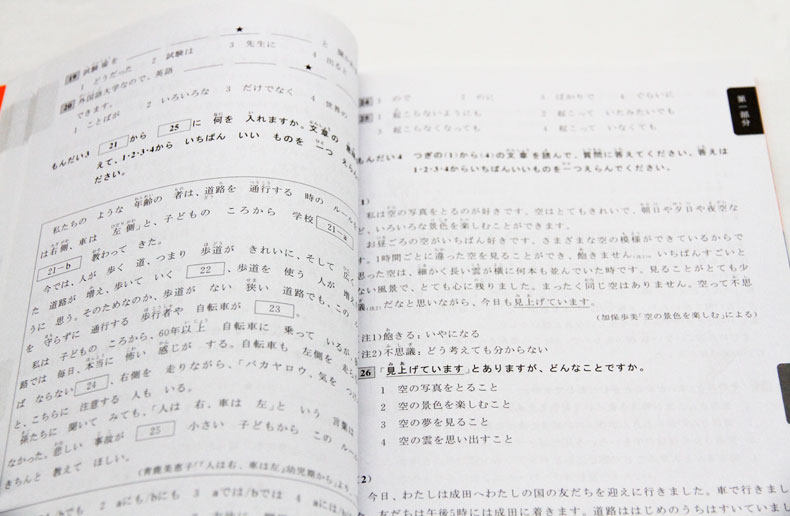 ★
と
19 試験 後を
1 どうだった 2 試験は 3 先生に 4 出ると
★
20 外国語大学なので、英語
できます。
1 ことばが 2 いろいろな 3 だけでなく 4 世界の
もんだい3 21 から 25 に 何を 入れますか。文章の
えて、1・2・3・4から いちばん いい ものを 一つ えらん
ださい。
私たちの ような 年齢の 者は、道路を 通行する 時の ルール
は右側、車は 左側」と、子どもの ころから 学校 21-a
21-b 教わって きた。
今では、人が 歩く 道、つまり 歩道が きれいに、そして 広
た 道路が 増え、歩いて いく 22 、歩道を 使う 人が 増
うに 思う。そのためなのか、歩道が ない 狭い 道路でも、この
を 守らずに 通行する 歩行者や 自転車が 23 。
私は 子どもの ころから、60年以上 自転車に 乗って いるが
路では 毎日、本当に 怖い 感じが する。自転車も 左側を 走
ば ならない 24 、右側を 走りながら、「バカヤロウ、気を つ
と、こちらに 注意する 人も いる。
孫たちに 聞いて みても、「人は 右、車は 左」と いう 言葉は
なかった。悲しい 事故が 25 小さい 子どもから この ルー
きちんと 教えて ほしい。
(青鹿美恵子「『人は右、車は左』幼児期から」より
でも/bでも 2 aにも/bにも 3 aでは/bでは 4 aには/b
第一部分
24 1 ので 2 のに 3 ばかりで 4 ぐらいに
25 1 起こらないようにも 2 起こって いたみたいでも
3 起こらなくなっても 4 起こって いなくても
もんだい4 つぎの(1)から(4)の文章を読んで、質問に答えてください。答えは
1・2・3・4からいちばんいいものを一つえらんでください。
1)
私は空の写真をとるのが好きです。空はとてもきれいで、朝日や夕日や夜空な
ど、いろいろな景色を楽しむことができます。
お昼ごろの空がいちばん好きです。さまざまな空の模様ができているからで
す。1時間ごとに違った空を見ることができ、飽きません(注1)。いちばんすごいと
思った空は、細かく長い雲が横に何本も並んでいた時です。見ることがとても少
ない風景で、とても心に残りました。まったく同じ空はありません。空って不思
議(注2)だなと思いながら、今日も見上げています。
(加保歩美「空の景色を楽しむ」による)
注1)飽きる:いやになる
注2)不思議:どう考えても分からない
26 「見上げています」とありますが、どんなことですか。
1 空の写真をとること
2 空の景色を楽しむこと
3 空の夢を見ること
4 空の雲を思い出すこと
2)
今日、わたしは成田へわたしの国の友だちを迎えに行きました。車で行きまし
友だちは午後5時には成田に着きます。道路ははじめのうちはすいていまし